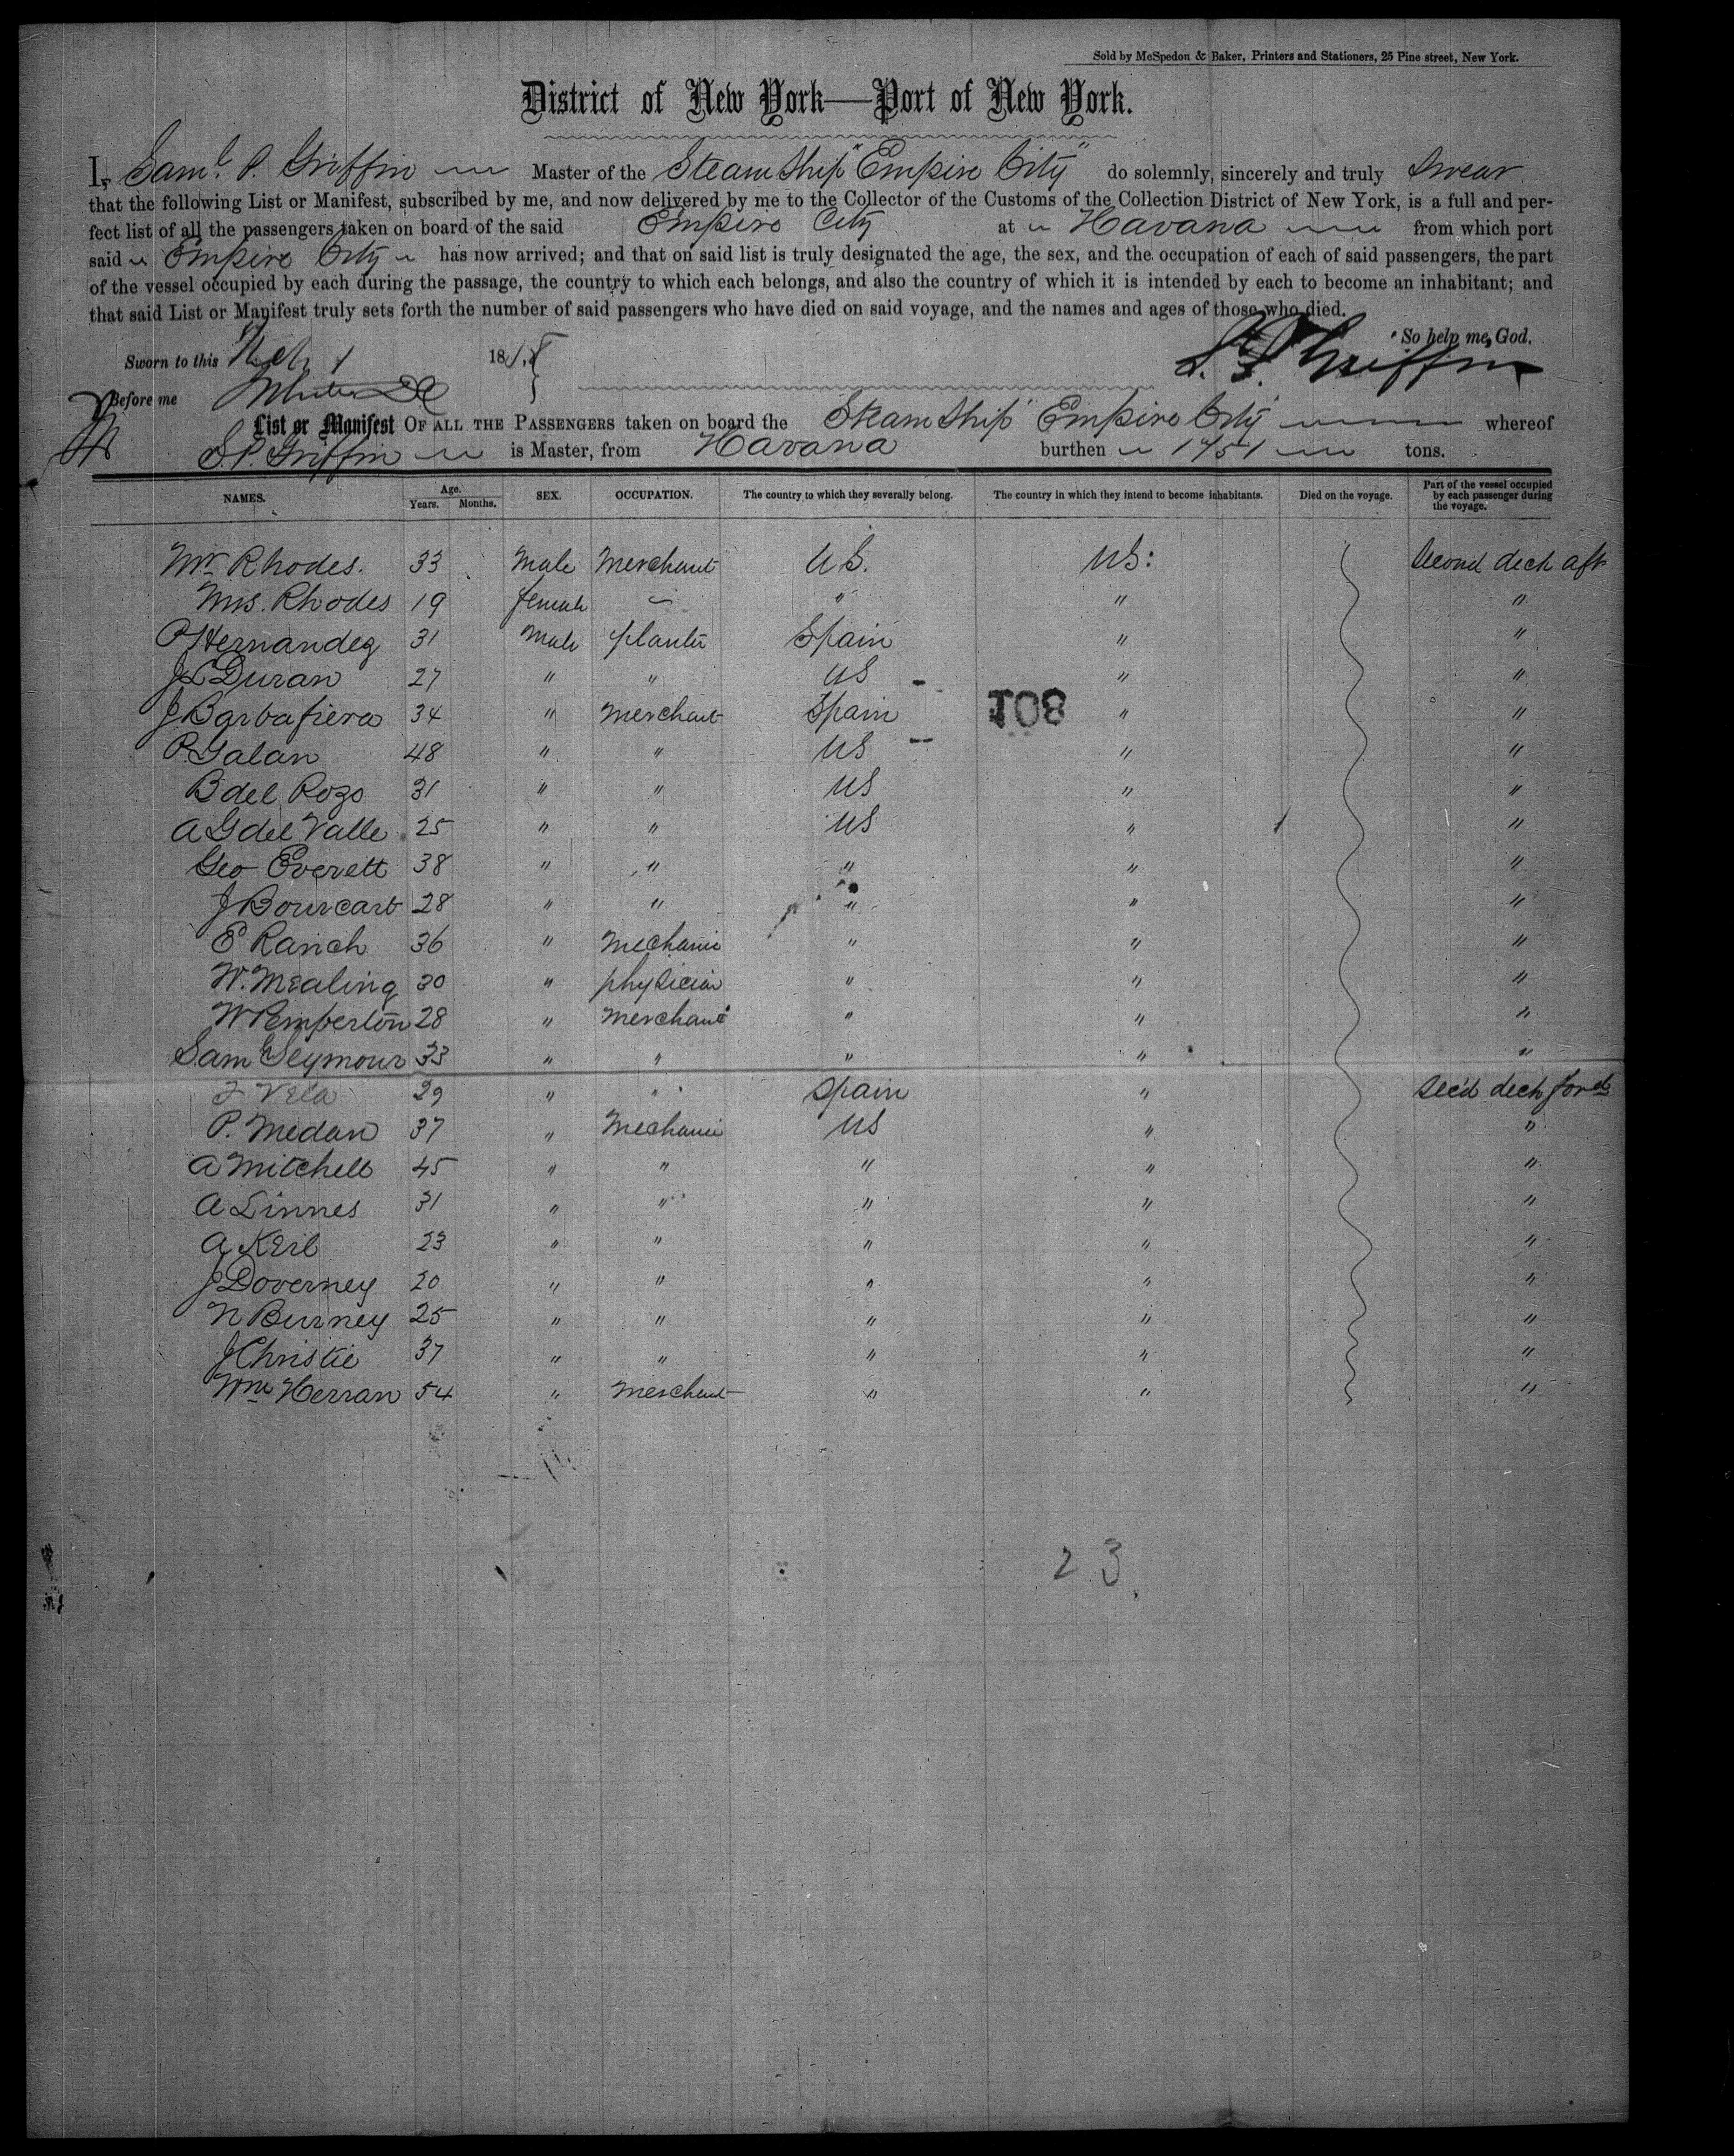 Sold by McSpedon & Baker, Printers and Stationers, 25 Pine street, New York.
District of New York—Port of New York.
I, Saml. P. Griffin Master of the Steam Ship "Empire City" do solemnly, sincerely and truly Swear
that the following List or Manifest, subscribed by me, and now delivered by me to the Collector of the Customs of the Collection District of New York, is a full and per-
fect list of all the passengers taken on board of the said Empire City at Havana from which port
said Empire City has now arrived; and that on said list is truly designated the age, the sex, and the occupation of each of said passengers, the part
of the vessel occupied by each during the passage, the country to which each belongs, and also the country of which it is intended by each to become an inhabitant; and
that said List or Manifest truly sets forth the number of said passengers who have died on said voyage, and the names and ages of those who died.
So help me, God.
Sworn to this 18
S. P. Griffin
Before me
List or Manifest OF ALL THE PASSENGERS taken on board the Steam Ship Empire City whereof
S. P. Griffin is Master, from Havana burthen 1751 tons.
NAMES. Age. Years. Months. SEX. OCCUPATION. The country to which they severally belong. The country in which they intend to become inhabitants. Died on the voyage. Part of the vessel occupied by each passenger during the voyage.
Mr Rhodes. 33 Male Merchant U S. US: Second deck aft
Mrs. Rhodes 19 female — " " "
P Hernandez 31 Male planter Spain " "
J L Duran 27 " " US " "
J Barbafiera 34 " Merchant Spain " "
108
P. Galan 48 " " US " "
B del Rozo 31 " " US " "
A G del Valle 25 " " US " "
Geo Everett 38 " " " " "
J Bourcart 28 " " " " "
E Ranch 36 " Mechanic " " "
W. Mealing 30 " physician " " "
W Pemberton 28 " Merchant " " "
Sam Seymour 33 " " " " "
F Vela 29 " " Spain " Sec'd deck forwd
P. Medan 37 " Mechanic US " "
A Mitchell 45 " " " " "
A Linnes 31 " " " " "
A Keil 23 " " " " "
J Doverney 20 " " " " "
N Burney 25 " " " " "
J Christie 37 " " " " "
Wm Herran 54 " Merchant " " "
23